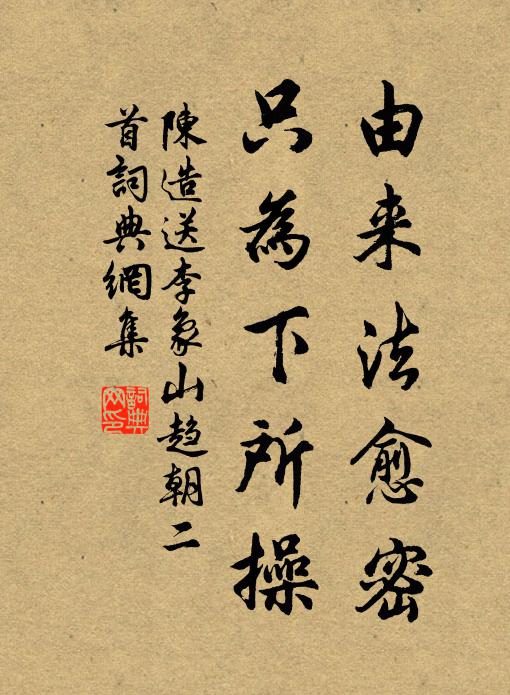 由来法愈密
只為下所操
陳造送李象山趋朝二
首詞典網集
詞典網印